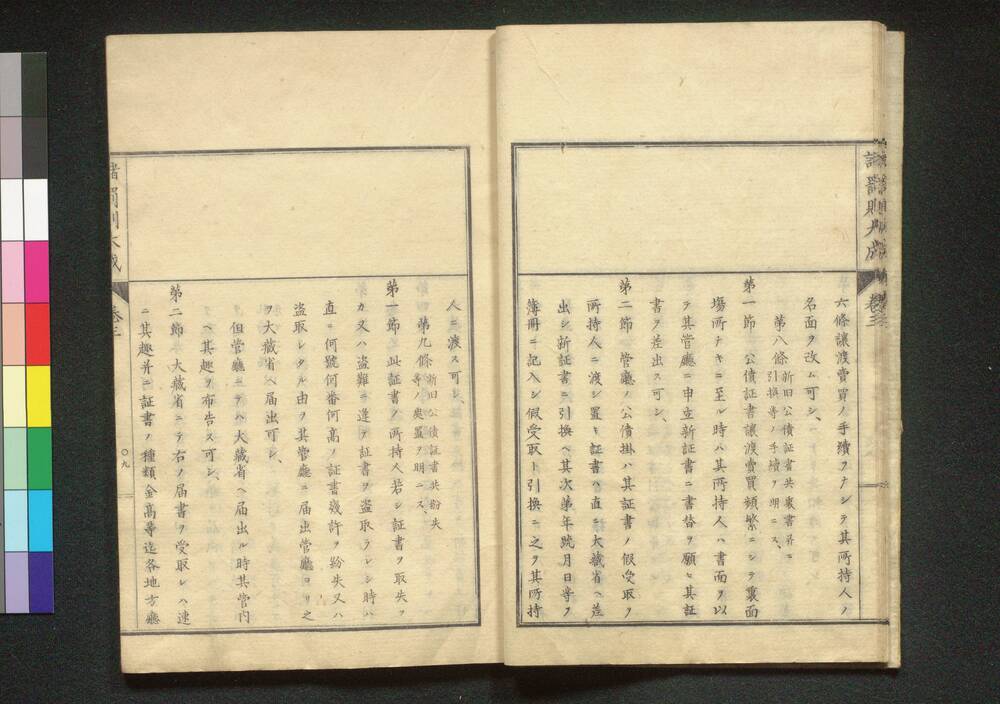 諸罰則大成
卷三
六條讓渡賣買ノ手續ヲナシテ其所持人ノ
名面ヲ改ム可シ、
第八條 新旧公債証書共裏書昇ニ
引換等ノ手續ヲ明ニス、
第一節 公債証書讓渡賣買頻繁ニシテ裏面
塲所ナキニ至ル時ハ其所持人ハ書面ヲ以
テ其管廳ニ申立新証書ニ書替ヲ願ヒ其証
書ヲ差出ス可シ、
第二節 管廳ノ公債掛ハ其証書ノ假受取ヲ
所持人ニ渡シ置キ証書ハ直ニ大藏省ヘ差
出シ新証書ニ引換ヘ其次第年號月日等ヲ
簿冊ニ記入シ假受取ト引換ニ之ヲ其所持
人ニ渡ス可シ、
第九條 新旧公債証書共紛失
等ノ処置ヲ明ニス、
第一節 此証書ノ所持人若シ証書ヲ取失ヲ
カ又ハ盗難ニ逢テ証書ヲ盗取ラレシ時ハ
直ニ何號何番何高ノ証書幾許ヲ紛失又ハ
盗取レタル由ヲ其管廳ニ届出管廳ヨリ之
ヲ大藏省ヘ届出可シ、
但管廳ニテハ大藏省ヘ届出ル時其管内
ヘ其趣ヲ布告ス可シ、
第二節 大藏省ニテ右ノ届書ヲ受取レハ速
ニ其趣并ニ証書ノ種類金高等迄各地方廳
諸罰則大成
卷三
〇九